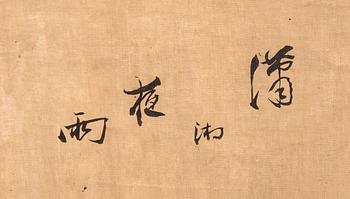 瀟湘夜雨